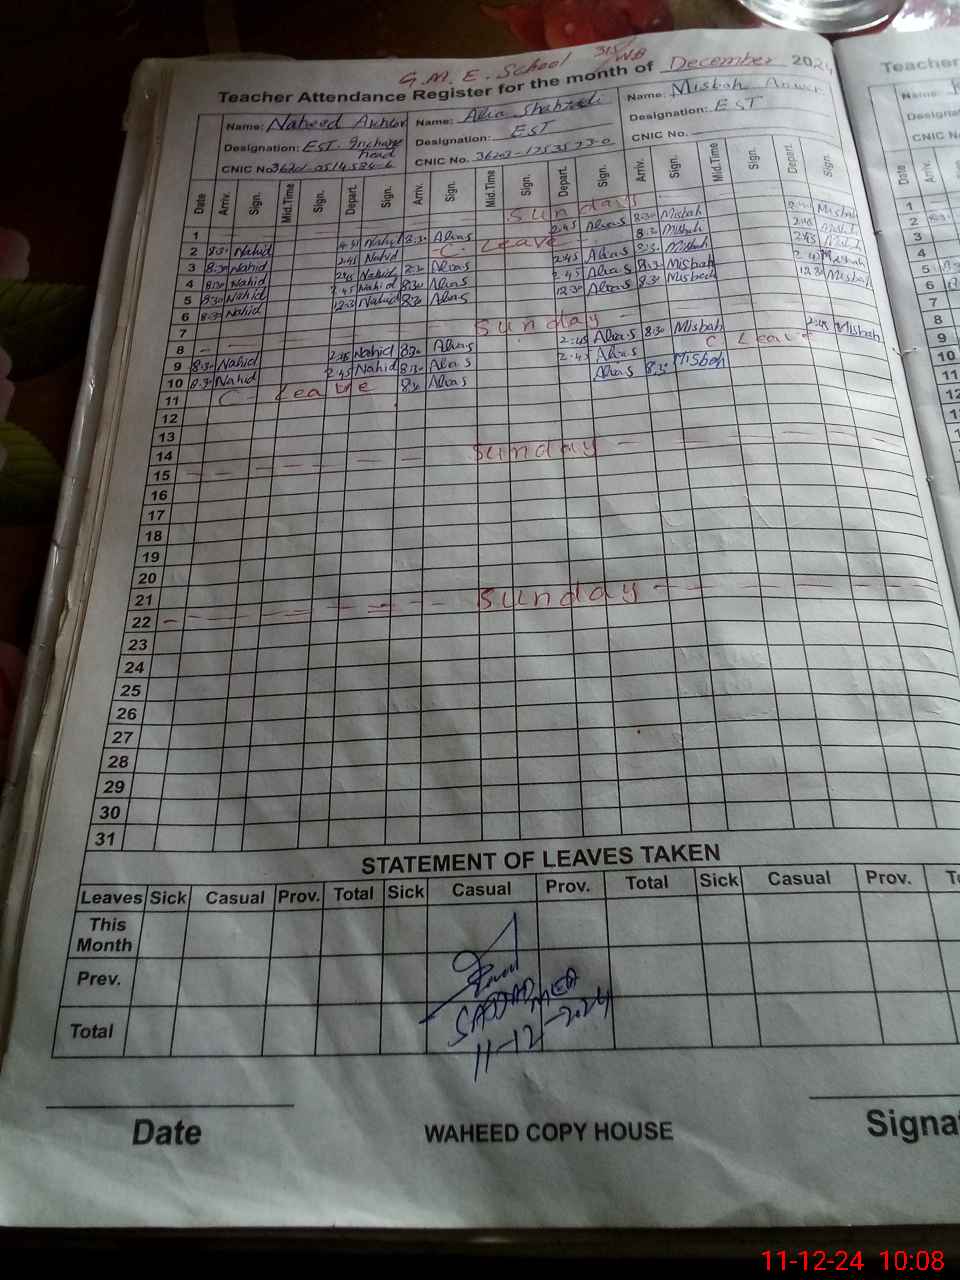 G.M.E. School 315/WB
Teacher Attendance Register for the month of December 2024
Name: Naheed Akhtar Name: Alia Shahzadi Name: Misbah Anwer
Designation: EST Incharge head Designation: EST Designation: EST
CNIC No. CNIC No. CNIC No.
Date Arriv. Sign. Mid.Time Sign. Depart. Sign. Arriv. Sign. Mid.Time Sign. Depart. Sign. Arriv. Sign. Mid.Time Sign. Depart. Sign.
1 Sunday
2 8:30 Nahid Nahid 8:30 Alias 2:45 Alias 8:30 Misbah Misbah
3 8:30 Nahid 2:45 Nahid C Leave 8:30 Misbah 2:45 Misbah
4 8:30 Nahid 2:45 Nahid 8:30 Alias 2:45 Alias 8:30 Misbah 2:45 Misbah
5 8:30 Nahid 2:45 Nahid 8:30 Alias 2:45 Alias 8:30 Misbah Misbah
6 8:30 Nahid 12:30 Nahid 8:30 Alias 12:30 Alias 8:30 Misbah 12:30 Misbah
7
8 Sunday
9 8:30 Nahid 2:45 Nahid 8:30 Alias 2:45 Alias 8:30 Misbah 2:45 Misbah
10 8:30 Nahid 2:45 Nahid 8:30 Alias 2:45 Alias C Leave
11 C- Leave 8:30 Alias Alias 8:30 Misbah
12
13
14
15 Sunday
16
17
18
19
20
21
22 Sunday
23
24
25
26
27
28
29
30
31
STATEMENT OF LEAVES TAKEN
Leaves Sick Casual Prov. Total Sick Casual Prov. Total Sick Casual Prov.
This Month
Prev.
Total
SADDAD MEA
11-12-2024
Date WAHEED COPY HOUSE
11-12-24 10:08